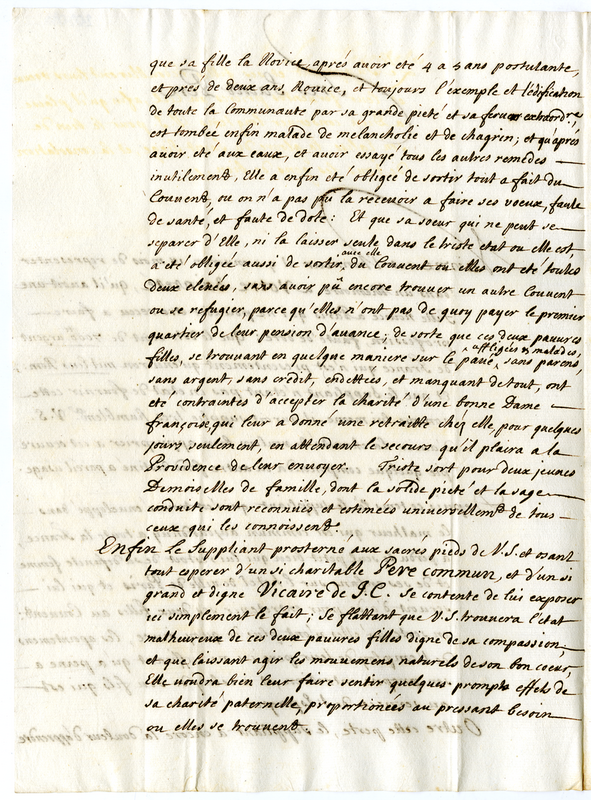 que sa fille la Novice, aprés avoir eté 4 a 5 ans postulante,
et prés de deux ans Novice, et toujours l'exemple et l'edification
de toute la Communauté par sa grande pieté et sa ferveur extraordre,
est tombée enfin malade de melancholie et de chagrin; et qu'aprés
avoir eté aux eaux, et avoir essayé tous les autres remedes
inutilement, Elle a enfin eté obligée de sortir tout a fait du
Couvent, ou on n'a pas pû la recevoir a faire ses voeux, faute
de santé, et faute de dote: Et que sa soeur qui ne peut se
separer d'Elle, ni la laisser seule dans le triste etat ou elle est,
a été obligée aussi de sortir avec elle du Couvent ou elles ont eté toutes
deux elevées, sans avoir pû encore trouver un autre Couvent
ou se refugier, parce qu'elles n'ont pas de quoy payer le premier
quartier de leur pension d'avance; de sorte que ces deux pauvres
filles, se trouvant en quelque maniere sur le pavé, affligées & malades, sans parens,
sans argent, sans credit, endettées, et manquant de tout, ont
eté contraintes d'accepter la charité d'une bonne Dame
françoise, qui leur a donné une retraitte chez elle pour quelques
jours seulement, en attendant le secours qu'il plaira a la
Providence de leur envoyer. Triste sort pour deux jeunes
Demoiselles de famille, dont la solide pieté et la sage
conduite sont reconnues et estimées universellemt de tous
ceux qui les connoissent.
Enfin Le Suppliant prosterné aux sacrés pieds de V.S. et osant
tout esperer d'un si charitable Pere commun, et d'un si
grand et digne Vicaire de J.C. Se contente de lui exposer
ici simplement le fait; Se flattant que V.S. trouvera l'etat
malheureux de ces deux pauvres filles digne de sa compassion,
et que laissant agir les mouvemens naturels de son bon coeur,
Elle voudra bien leur faire sentir quelques prompts effets de
sa charité paternelle, proportionées au pressant besoin
ou elles se trouvent.